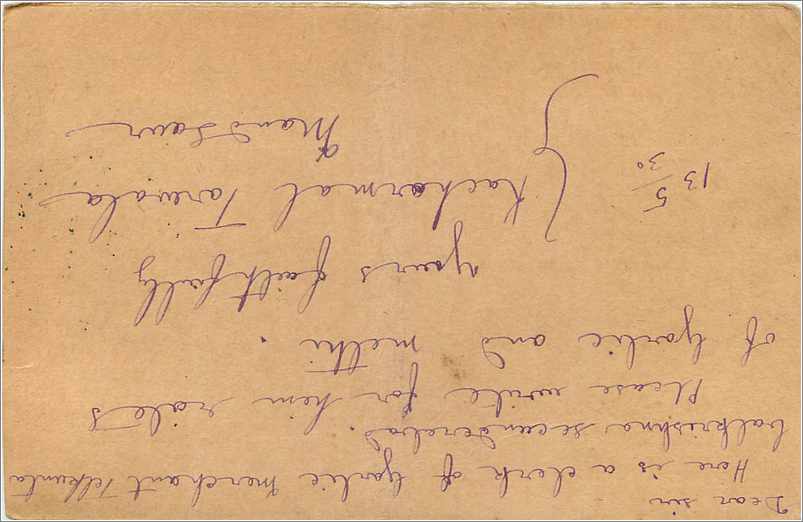 Dear sir
Here is a clerk of Garlic merchant Telkunta
balkrishna secunderabad.
Please write for him rates
of Garlic and methi.
yours faithfully
Kacharmal Tarewala
Mandsaur
13 5/30